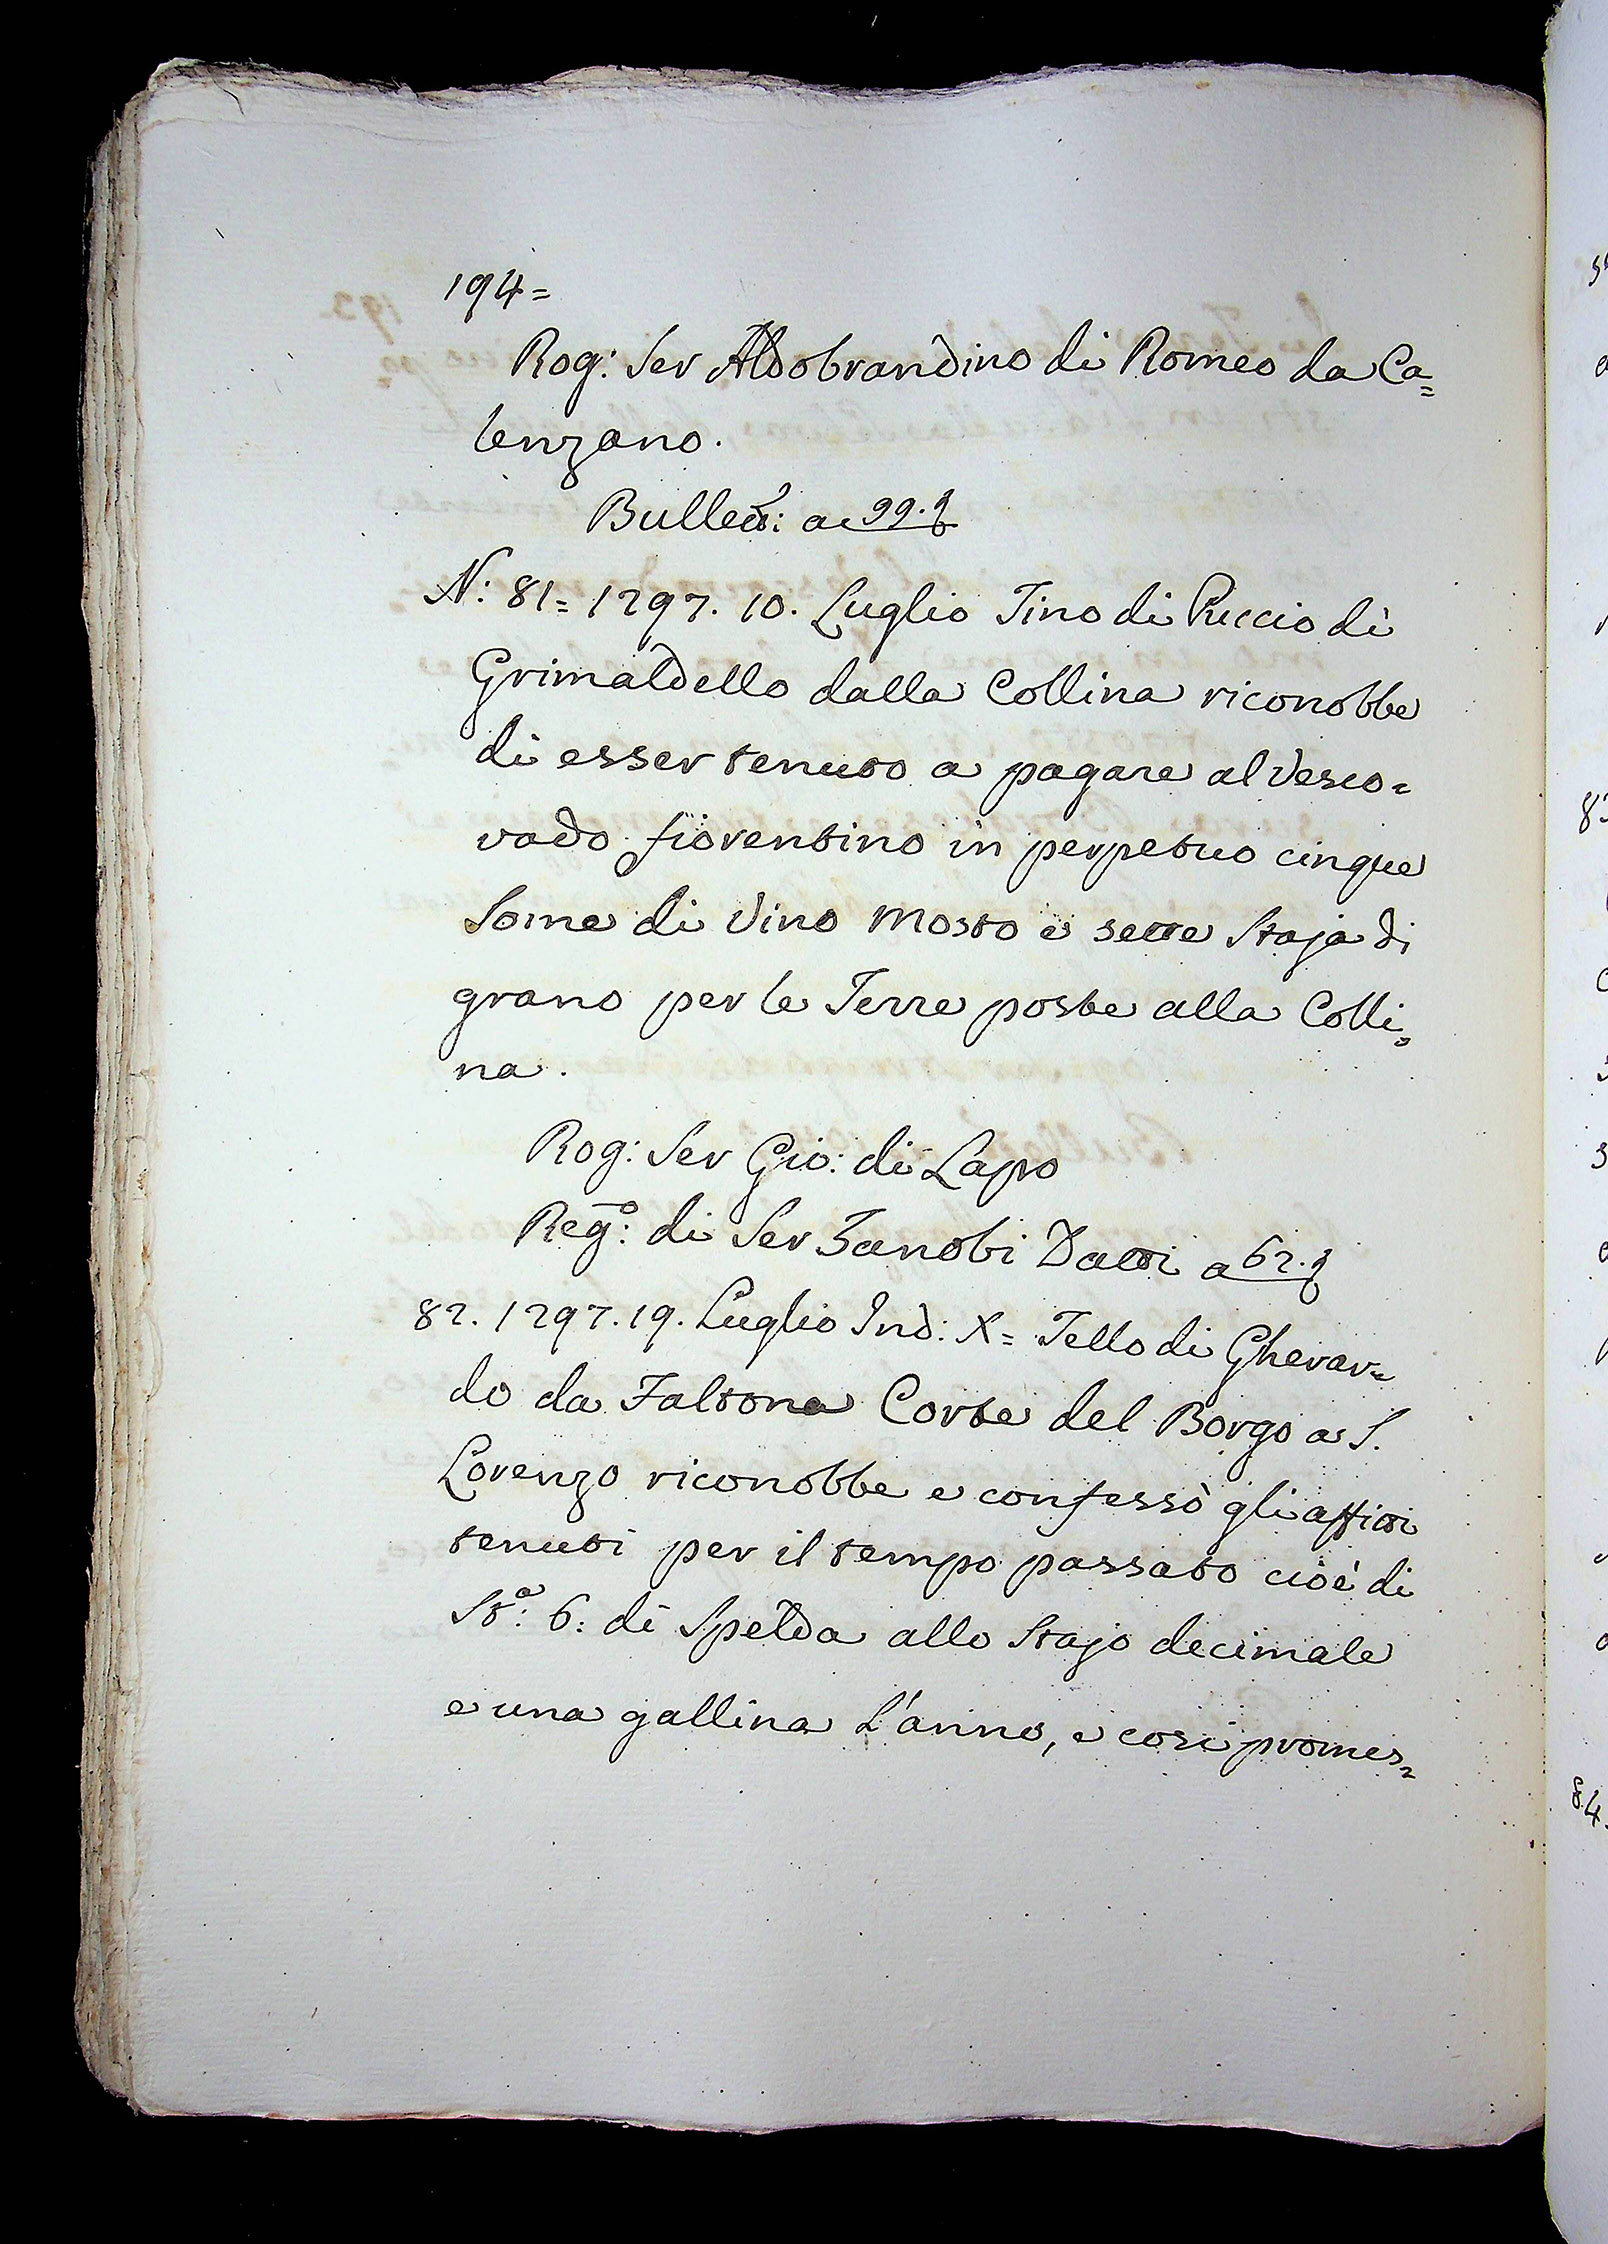 194=
Rog: Ser Aldobrandino di Romeo da Ca=
lenzano.
Bullett: a 99.
N: 81= 1297. 10. Luglio Tino di Puccio di
Grimaldello dalla Collina riconobbe
di esser tenuto a pagare al Vesco=
vado fiorentino in perpetuo cinque
Some di Vino Mosto e sette Staja di
grano per le Terre poste alla Colli=
na.
Rog: Ser Gio: di Lapo
Regº: di Ser Zanobi Datti a 62.
82. 1297. 19. Luglio Ind: X= Tello di Gherar=
do da Faltona Corte del Borgo a S.
Lorenzo riconobbe e confessò gli affitti
tenuti per il tempo passato cioè di
Stª: 6: di Spelda allo Stajo decimale
e una gallina L'anno, e così promes=
84.